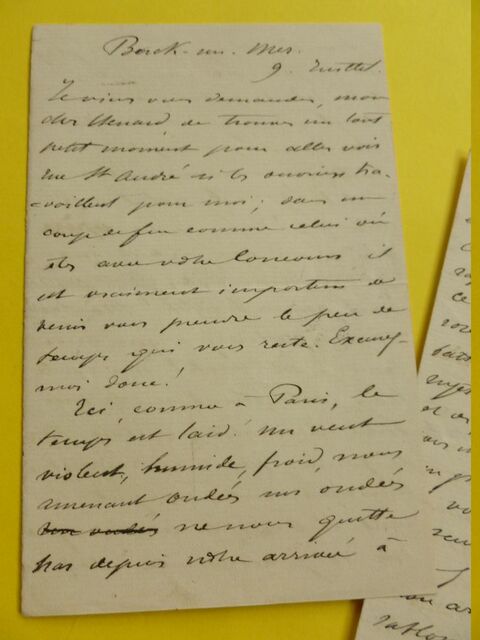 Berck-sur-Mer.
9. Juillet.
Je viens vous demander, mon
cher Menard de trouver un tout
petit moment pour aller voir
rue St André si les ouvriers tra-
-vaillent pour moi; dans un
coup de feu comme celui où
êtes avec votre Concours il
est vraiment important de
venir vous prendre le peu de
temps qui vous reste. Excusez-
moi donc!
Ici, comme à Paris, le
temps est laid: un vent
violent, humide, froid, nous
amenant ondées sur ondées
ne nous quitte
pas depuis notre arrivée à